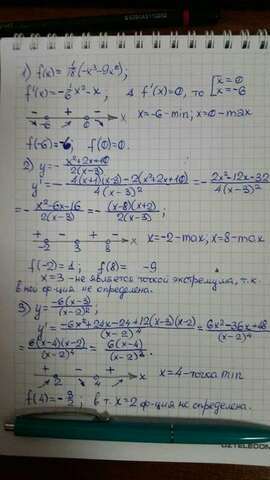 1) f(x) = 1/18 (-x³-9x²);
f'(x) = -1/6 x² - x, f'(x)=0, то [x=0 x=-6
- + - x
-6 0
x=-6-min; x=0-max
f(-6)=-6; f(0)=0.
2) y = - (x²+2x+10)/(2(x-3))
y' = - (4(x+1)(x-3) - 2(x²+2x+10))/(4(x-3)²) = - (2x²-12x-32)/(4(x-3)²)
= - (x²-6x-16)/(2(x-3)) = - ((x-8)(x+2))/(2(x-3));
- + + - x
-2 3 8
x=-2-max, x=8-max
f(-2)=1; f(8)= -9
x=3 - не является точкой экстремума, т.к.
в ней ф-ция не определена.
3) y = (-6(x-3))/(x-2)²
y' = (-6x²+24x-24+12(x-3)(x-2))/(x-2)⁴ = (6x²-36x+48)/(x-2)⁴
= (6(x-4)(x-2))/(x-2)⁴ = (6(x-4))/(x-2)³.
+ - + x
2 4
x=4-точка min
f(4)=-3/2; в т. x=2 ф-ция не определена.